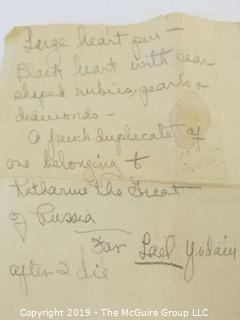 Large heart pin —
Black heart with pear
shaped rubies, pearls &
diamonds —
A french duplicate of
one belonging to
Katharine the Great
of Russia
For Lael
after I die
Copyright 2019 - The McGuire Group LLC